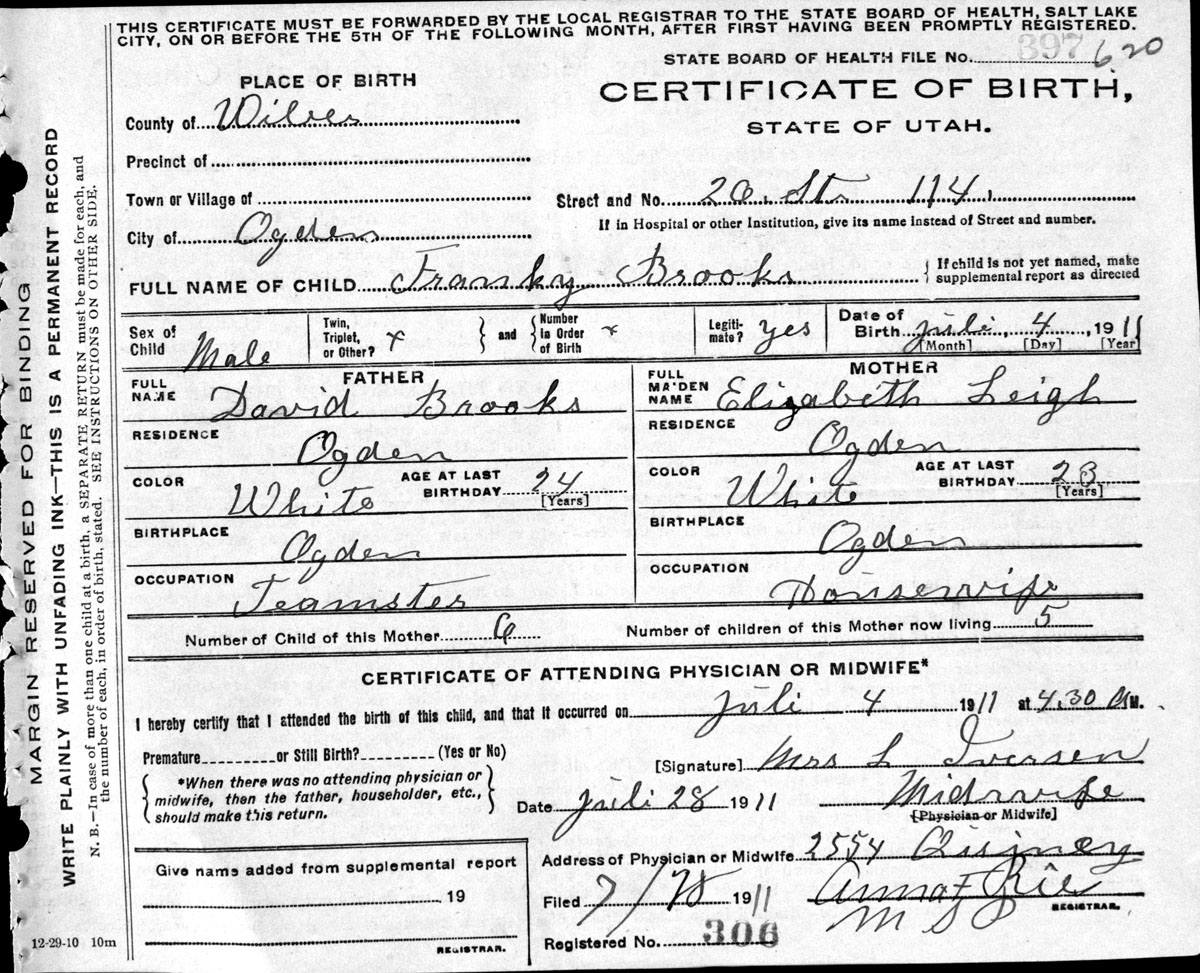 THIS CERTIFICATE MUST BE FORWARDED BY THE LOCAL REGISTRAR TO THE STATE BOARD OF HEALTH, SALT LAKE
CITY, ON OR BEFORE THE 5TH OF THE FOLLOWING MONTH, AFTER FIRST HAVING BEEN PROMPTLY REGISTERED.
STATE BOARD OF HEALTH FILE No. 397 620
PLACE OF BIRTH
CERTIFICATE OF BIRTH,
STATE OF UTAH.
County of
Precinct of
Town or Village of
Street and No. 20. St. 114.
If in Hospital or other Institution, give its name instead of Street and number.
City of Ogden
FULL NAME OF CHILD Franky Brooks { If child is not yet named, make
supplemental report as directed
Sex of Child Male
Twin, Triplet, or Other? x } and { Number in Order of Birth x
Legiti-mate? yes
Date of Birth juli 4, 1911
[Month] [Day] [Year]
FATHER
FULL NAME David Brooks
RESIDENCE Ogden
COLOR White AGE AT LAST BIRTHDAY 24
[Years]
BIRTHPLACE Ogden
OCCUPATION Teamster
MOTHER
FULL MAIDEN NAME Elizabeth Leigh
RESIDENCE Ogden
COLOR White AGE AT LAST BIRTHDAY 23
[Years]
BIRTHPLACE Ogden
OCCUPATION Housewife
Number of Child of this Mother 6 Number of children of this Mother now living 5
CERTIFICATE OF ATTENDING PHYSICIAN OR MIDWIFE*
I hereby certify that I attended the birth of this child, and that it occurred on juli 4 1911 at 4.30 M.
Premature or Still Birth? (Yes or No)
[Signature] Mrs L Iversen
{ *When there was no attending physician or
midwife, then the father, householder, etc.,
should make this return. }
Date juli 28 1911 Midwife
[Physician or Midwife]
Address of Physician or Midwife 2554 Quincy
Give name added from supplemental report
19
REGISTRAR.
Filed 7/28 1911
REGISTRAR.
Registered No. 306
12-29-10 10m
MARGIN RESERVED FOR BINDING
WRITE PLAINLY WITH UNFADING INK—THIS IS A PERMANENT RECORD
N. B.—In case of more than one child at a birth, a SEPARATE RETURN must be made for each, and
the number of each, in order of birth, stated. SEE INSTRUCTIONS ON OTHER SIDE.